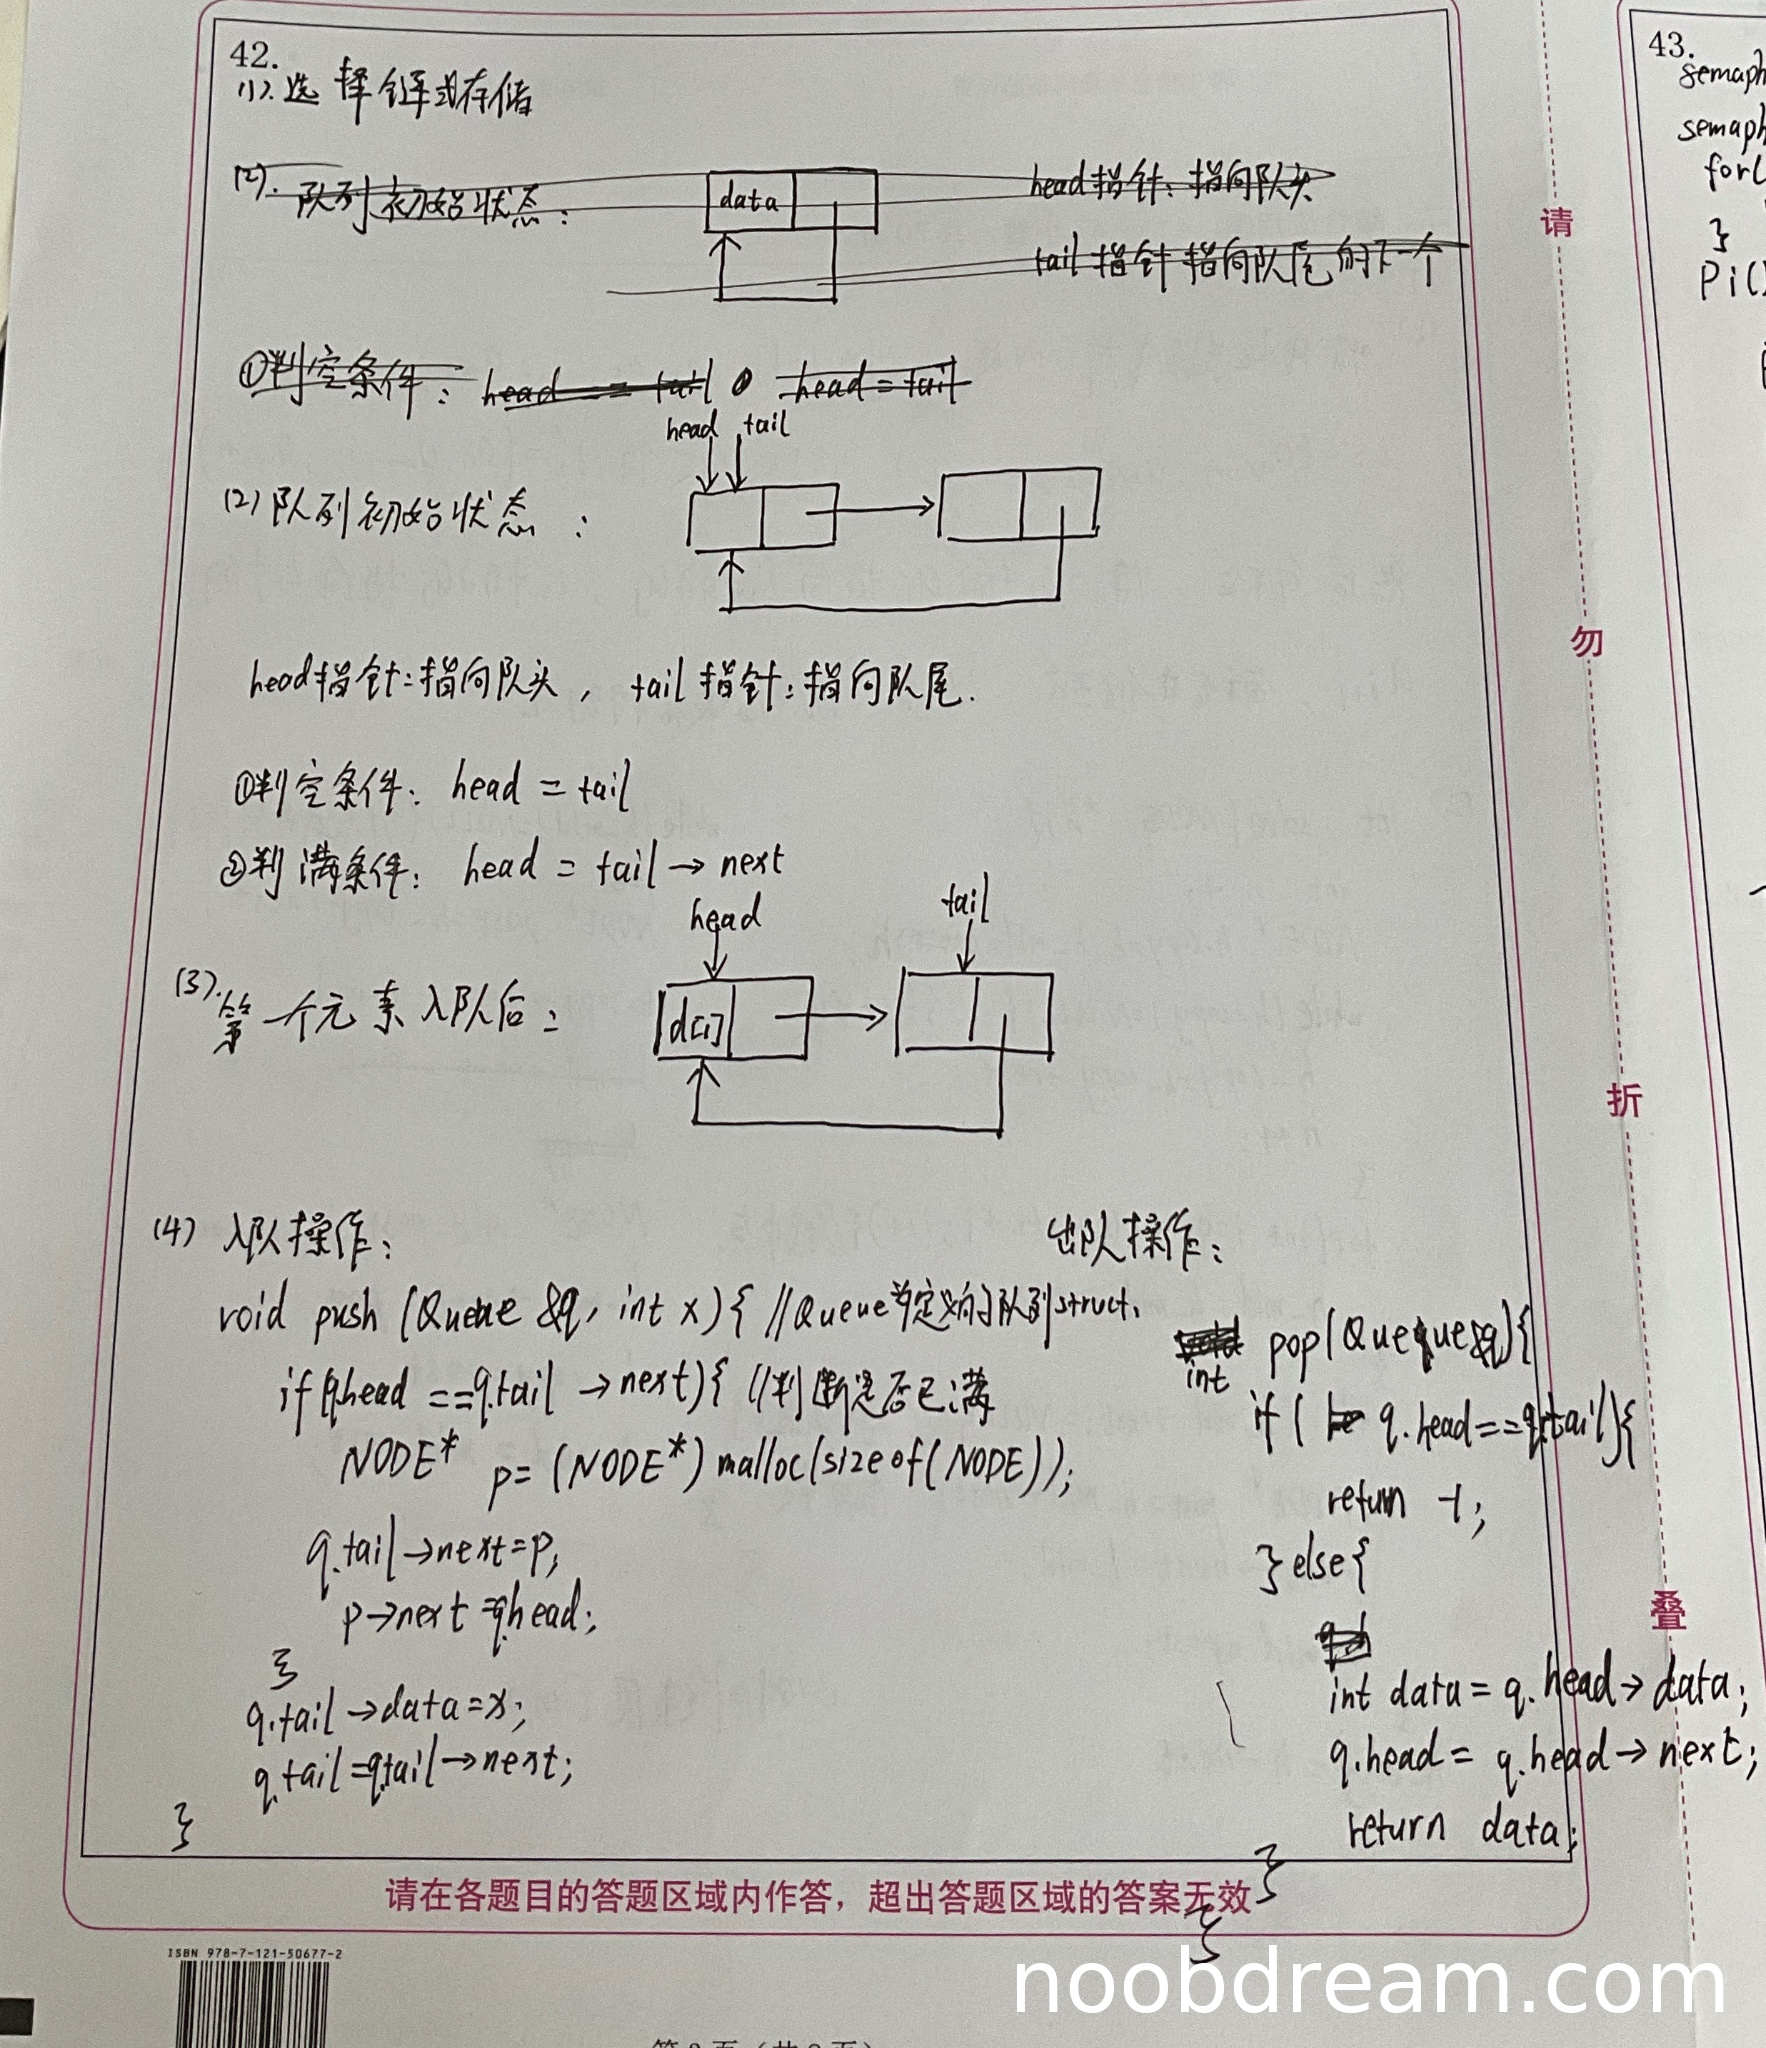 42.
(1).选择链式存储
(2).队列初始状态:
data
head指针:指向队头
tail指针 指向队尾的下一个
①判空条件: head == tail head=tail
head tail
(2)队列初始状态:
head指针:指向队头, tail指针:指向队尾.
①判空条件: head = tail
②判满条件: head = tail → next
head
tail
(3).第一个元素入队后:
d[1]
(4) 入队操作:
void push (Queue &q, int x){ //Queue为定义的队列struct.
if(q.head ==q.tail →next){ //判断是否已满
NODE* p= (NODE*) malloc(sizeof(NODE));
q.tail→next=p;
p→next=q.head;
}
q.tail→data=x;
q.tail=q.tail→next;
}
出队操作:
int pop(Queue &q){
if( q.head==q.tail){
return -1;
} else{
int data = q.head→data;
q.head= q.head→next;
return data;
}
}
请在各题目的答题区域内作答，超出答题区域的答案无效
ISBN 978-7-121-50677-2
请
勿
折
叠
43.
semaph
semaph
for(
}
Pi()
noobdream.com